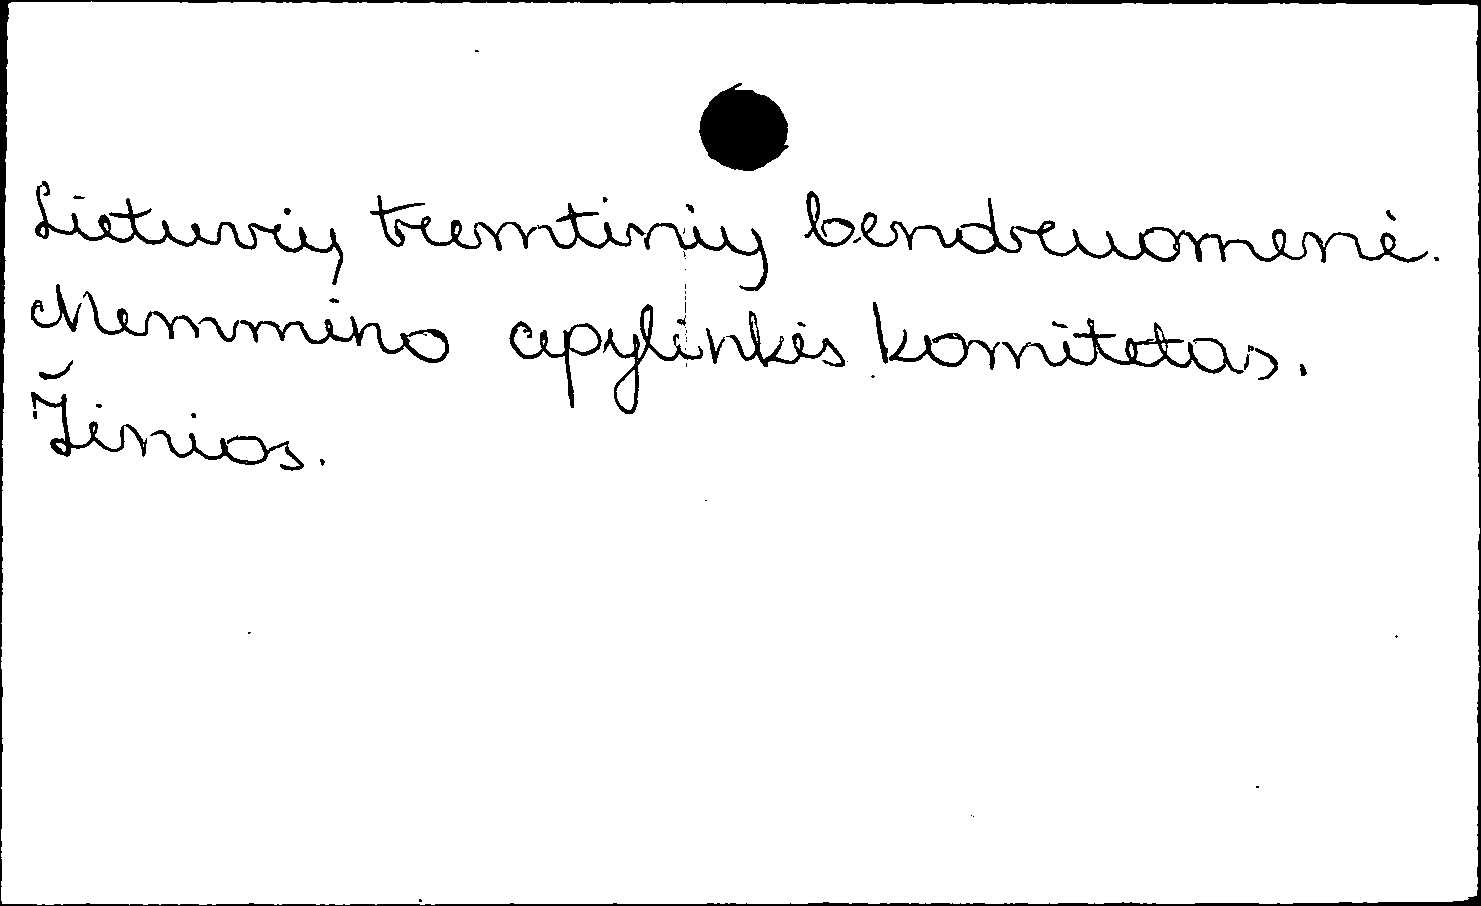 Lietuvių tremtinių bendruomenė.
Memmino apylinkės komitetas.
Žinios.